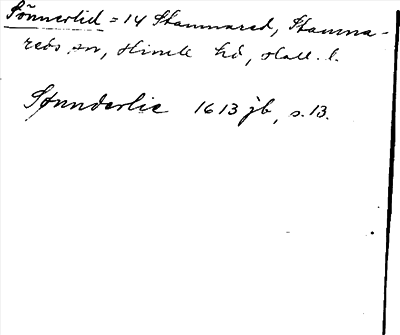 Sönnerlid = 14 Stamnared, Stamna-
reds sn, Himle hd, Hall. l.
Sønnderlie 1613 jb, s. 13.